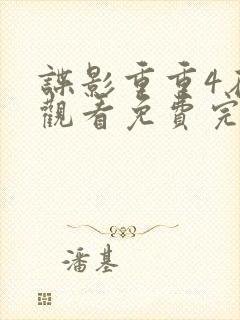 諜影重重4
觀看免費完
潘基